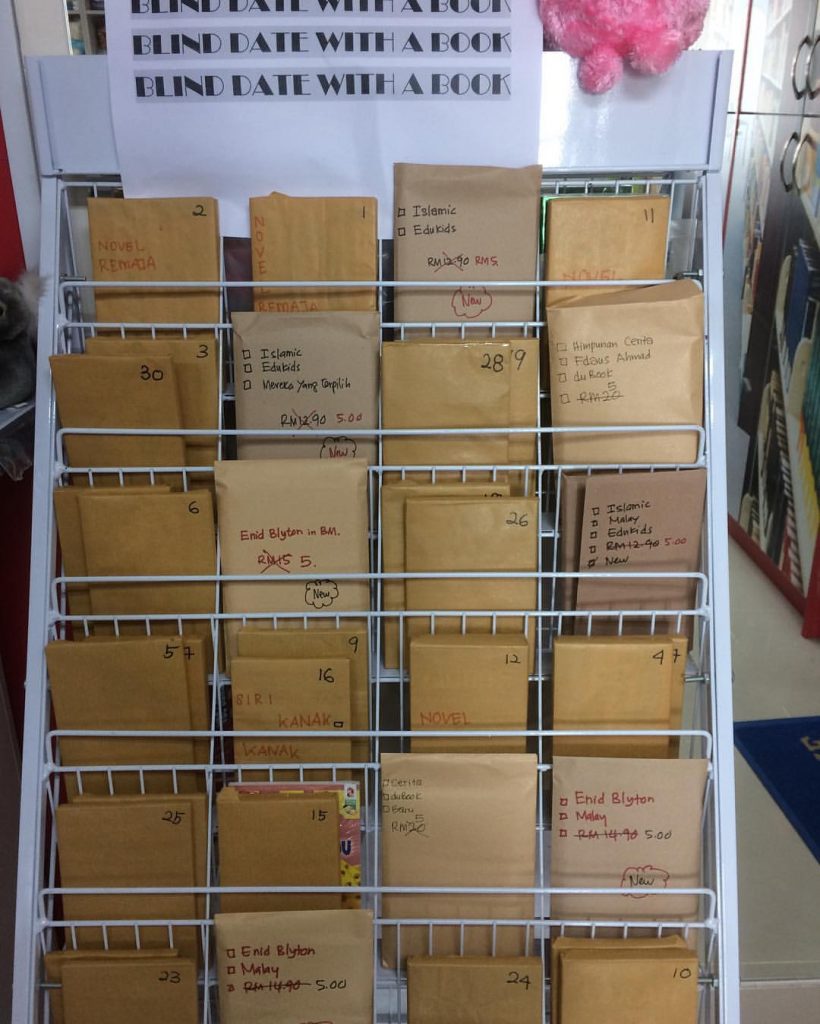 BLIND DATE WITH A BOOK
BLIND DATE WITH A BOOK
BLIND DATE WITH A BOOK
2
NOVEL
REMAJA
1
NOVEL
REMAJA
Islamic
Edukids
RM12.90 RM5
New
11
NOVEL
30
3
Islamic
Edukids
Mereka Yang Terpilih
RM12.90 5.00
New
28
9
Himpunan Cerita
Fdaus Ahmad
duBook
5
RM20
6
Enid Blyton in BM.
RM15 5.
New
26
Islamic
Malay
Edukids
RM 12.90 5.00
New
5
7
9
16
SIRI
KANAK
KANAK
12
NOVEL
4
7
25
15
Cerita
duBook
Baru
5
RM20
Enid Blyton
Malay
RM 14.90 5.00
New
23
Enid Blyton
Malay
RM 14.90 5.00
24
10